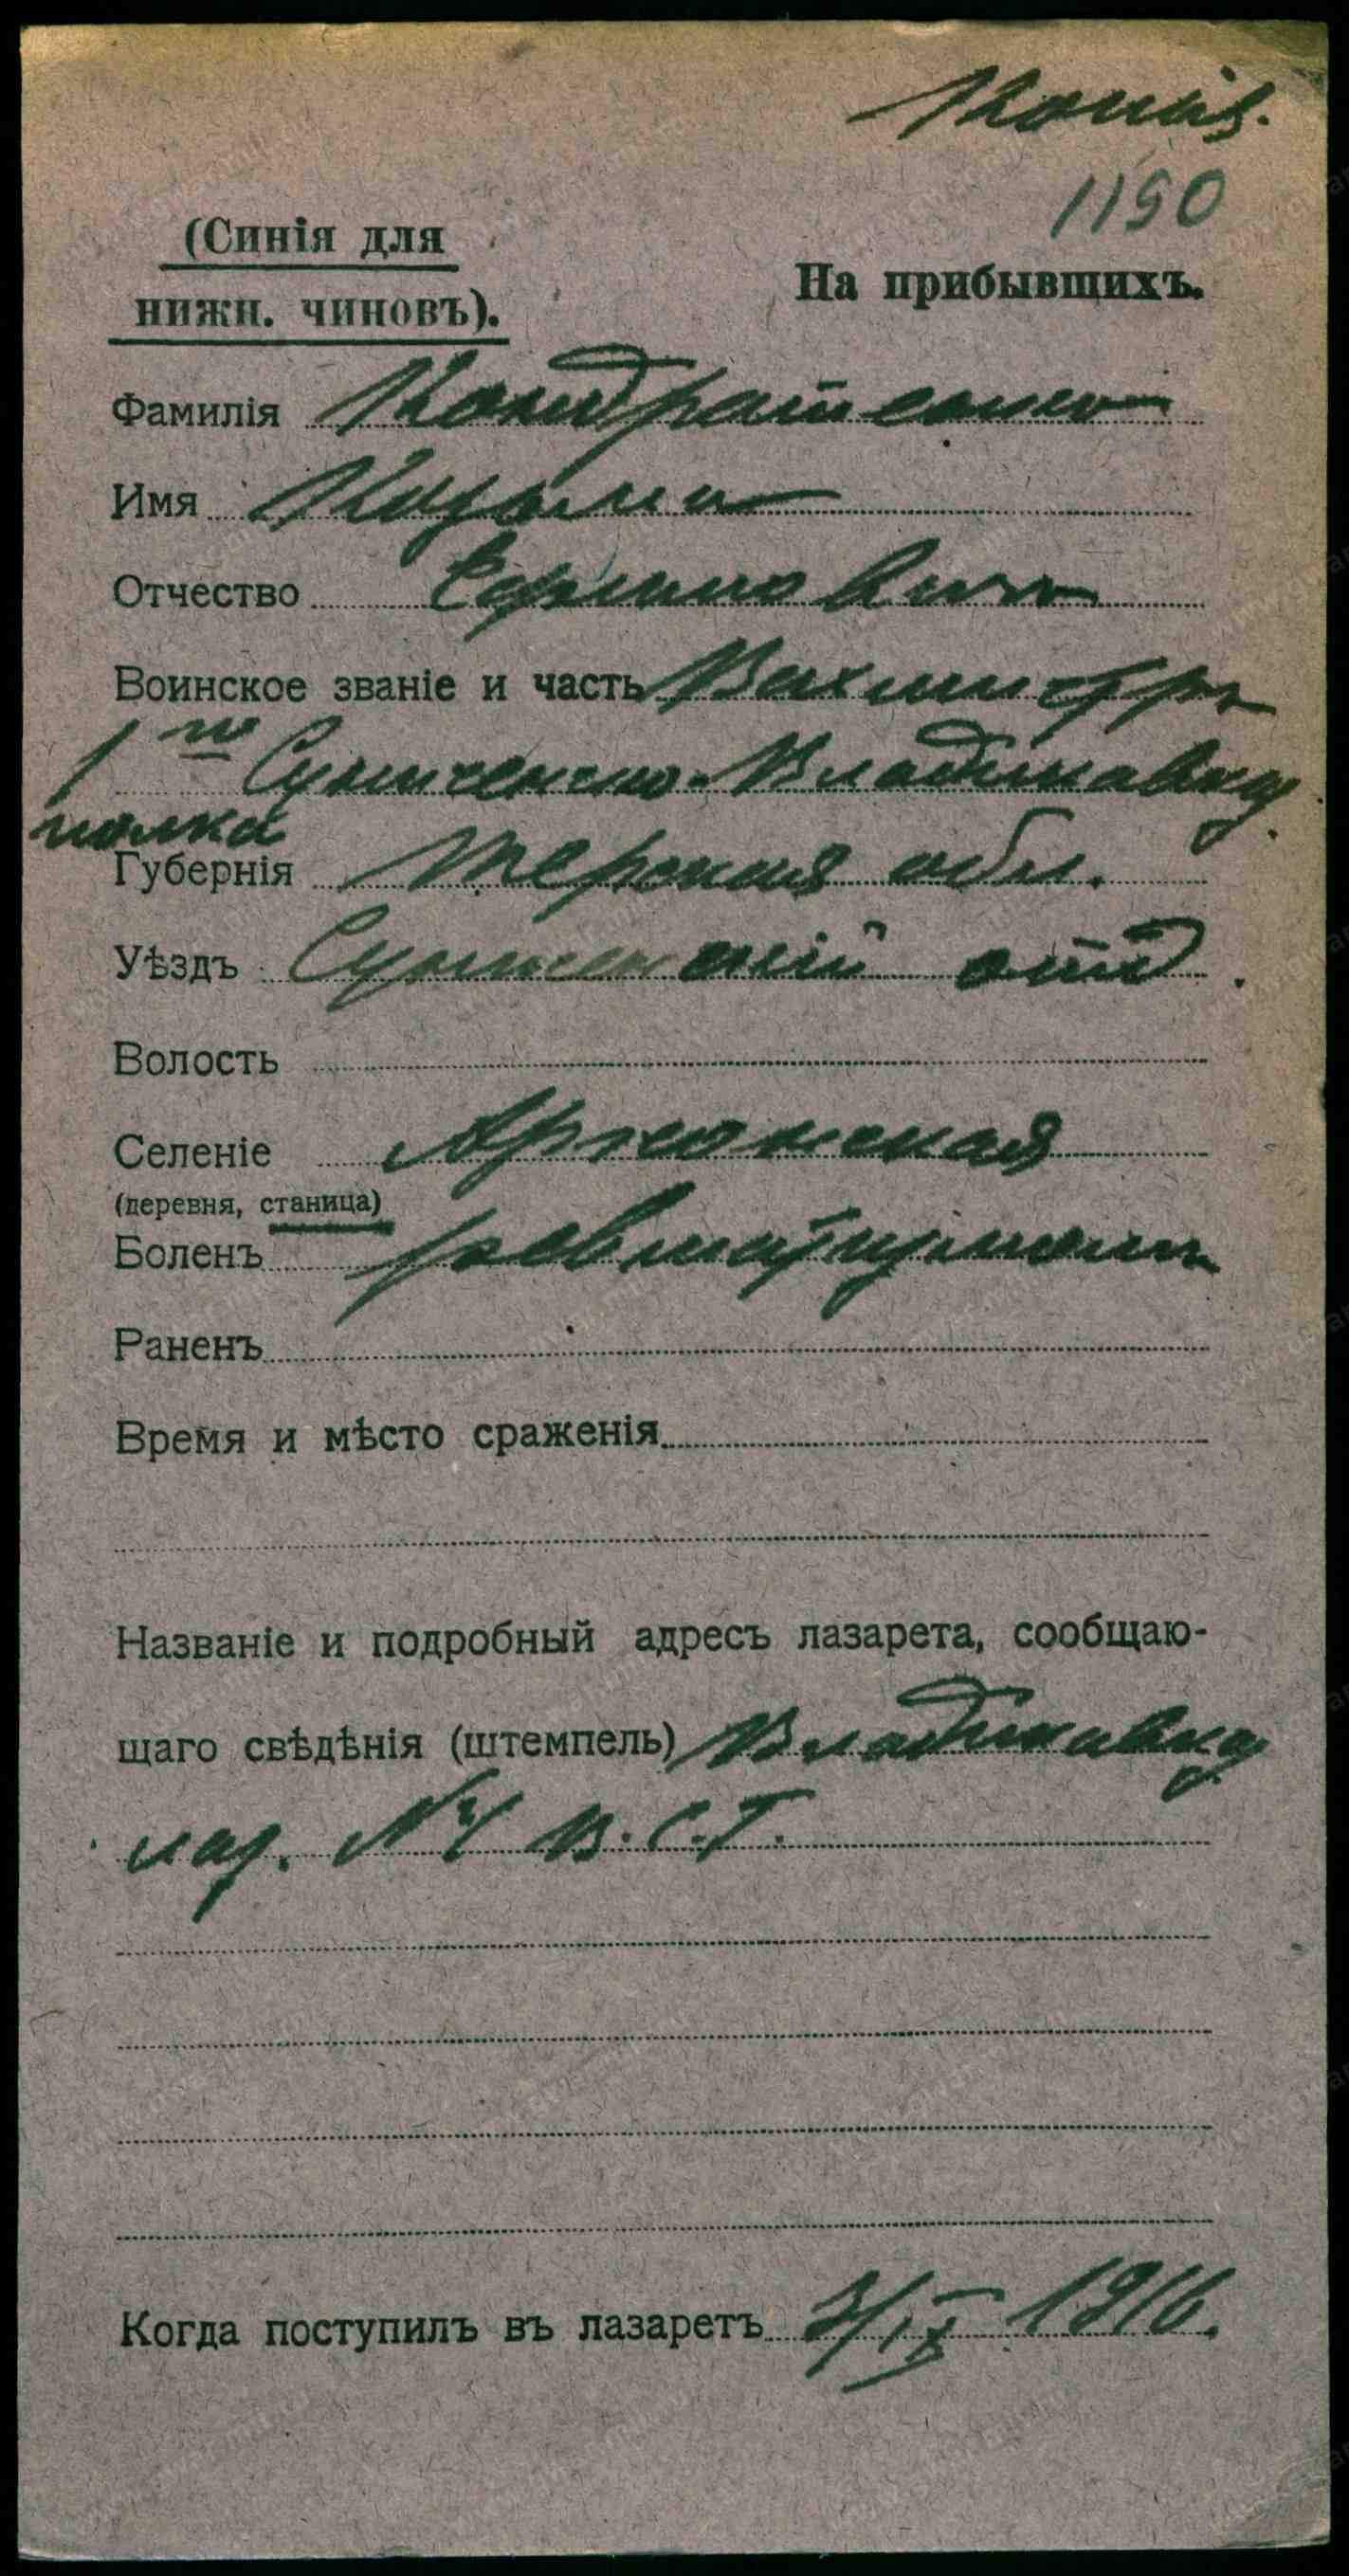 Копія.
1190
(Синія для
нижн. чиновъ).
На прибывшихъ.
Фамилія Кондратенко
Имя Козьма
Отчество
Воинское званіе и часть Вахмистръ
1го Сунженско-Владикавкз.
полка
Губернія Терская обл.
Уѣздъ Сунженскій отд.
Волость
Селеніе
(деревня, станица)
Боленъ ревматизмомъ
Раненъ
Время и мѣсто сраженія
Названіе и подробный адресъ лазарета, сообщаю-
щаго свѣдѣнія (штемпель) Владикавкз
лаз. В.С.Г.
Когда поступилъ въ лазаретъ 3/IX 1916.